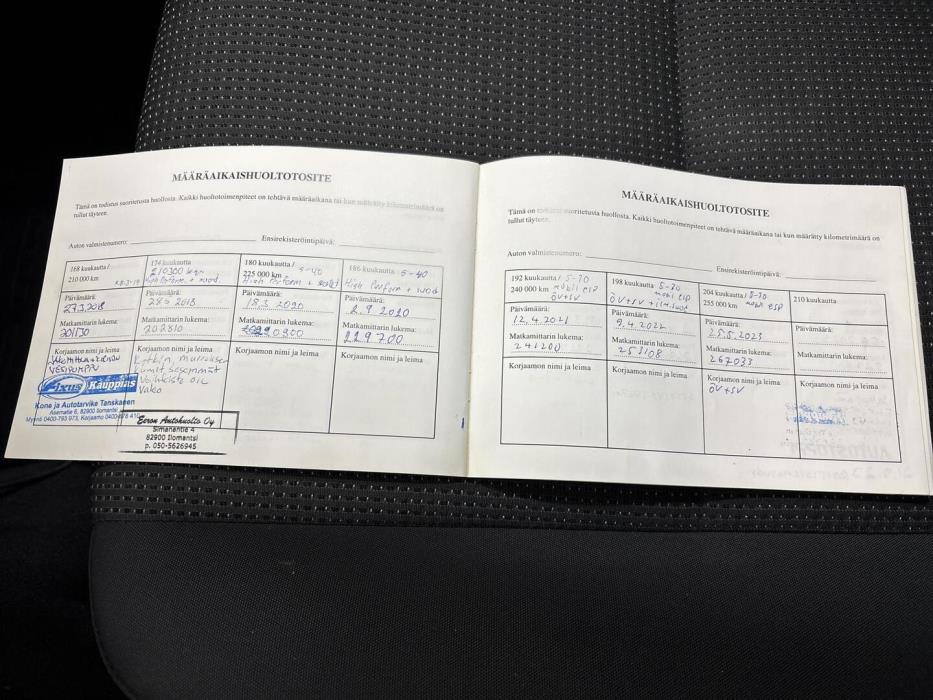 MÄÄRÄAIKAISHUOLTOTOSITE
Tämä on todistus suoritetusta huollosta. Kaikki huoltotoimenpiteet on tehtävä määräaikana tai kun määrätty kilometrimäärä on
tullut täyteen.
Auton valmistenumero: Ensirekisteröintipäivä:
168 kuukautta /
210 000 km
Päivämäärä:
27.3.2018
Matkamittarin lukema:
201130
Korjaamon nimi ja leima
VESIPUMPPU
Fixus Kauppias
Kone ja Autotarvike Tanskanen
Asematie 6, 82900 Ilomantsi
Myymö 0400-793 973, Korjaamo
174 kuukautta
210300 km
Päivämäärä:
2018
Matkamittarin lukema:
202810
Korjaamon nimi ja leima
OIL
Valeo
Eeron Autohuolto Oy
Simanentie 4
82900 Ilomantsi
p. 050-5626945
180 kuukautta / 5-40
225 000 km High Perform +
Päivämäärä:
18.3.2020
Matkamittarin lukema:
0900
Korjaamon nimi ja leima
186 kuukautta 5-40
High Perform +
Päivämäärä:
2.9 2020
Matkamittarin lukema:
229700
Korjaamon nimi ja leima
MÄÄRÄAIKAISHUOLTOTOSITE
Tämä on todistus suoritetusta huollosta. Kaikki huoltotoimenpiteet on tehtävä määräaikana tai kun määrätty kilometrimäärä on
tullut täyteen.
Auton valmistenumero: Ensirekisteröintipäivä:
192 kuukautta / 5-30
240 000 km mobil ESP
ÖV+SV
Päivämäärä:
12.4.2021
Matkamittarin lukema:
241200
Korjaamon nimi ja leima
198 kuukautta 5-30
mobil ESP
ÖV+SV +
Päivämäärä:
9.4.2022
Matkamittarin lukema:
253108
Korjaamon nimi ja leima
204 kuukautta / 5-30
255 000 km mobil ESP
Päivämäärä:
25.5.2023
Matkamittarin lukema:
267033
Korjaamon nimi ja leima
ÖV+SV
210 kuukautta
Päivämäärä:
Matkamittarin lukema:
Korjaamon nimi ja leima